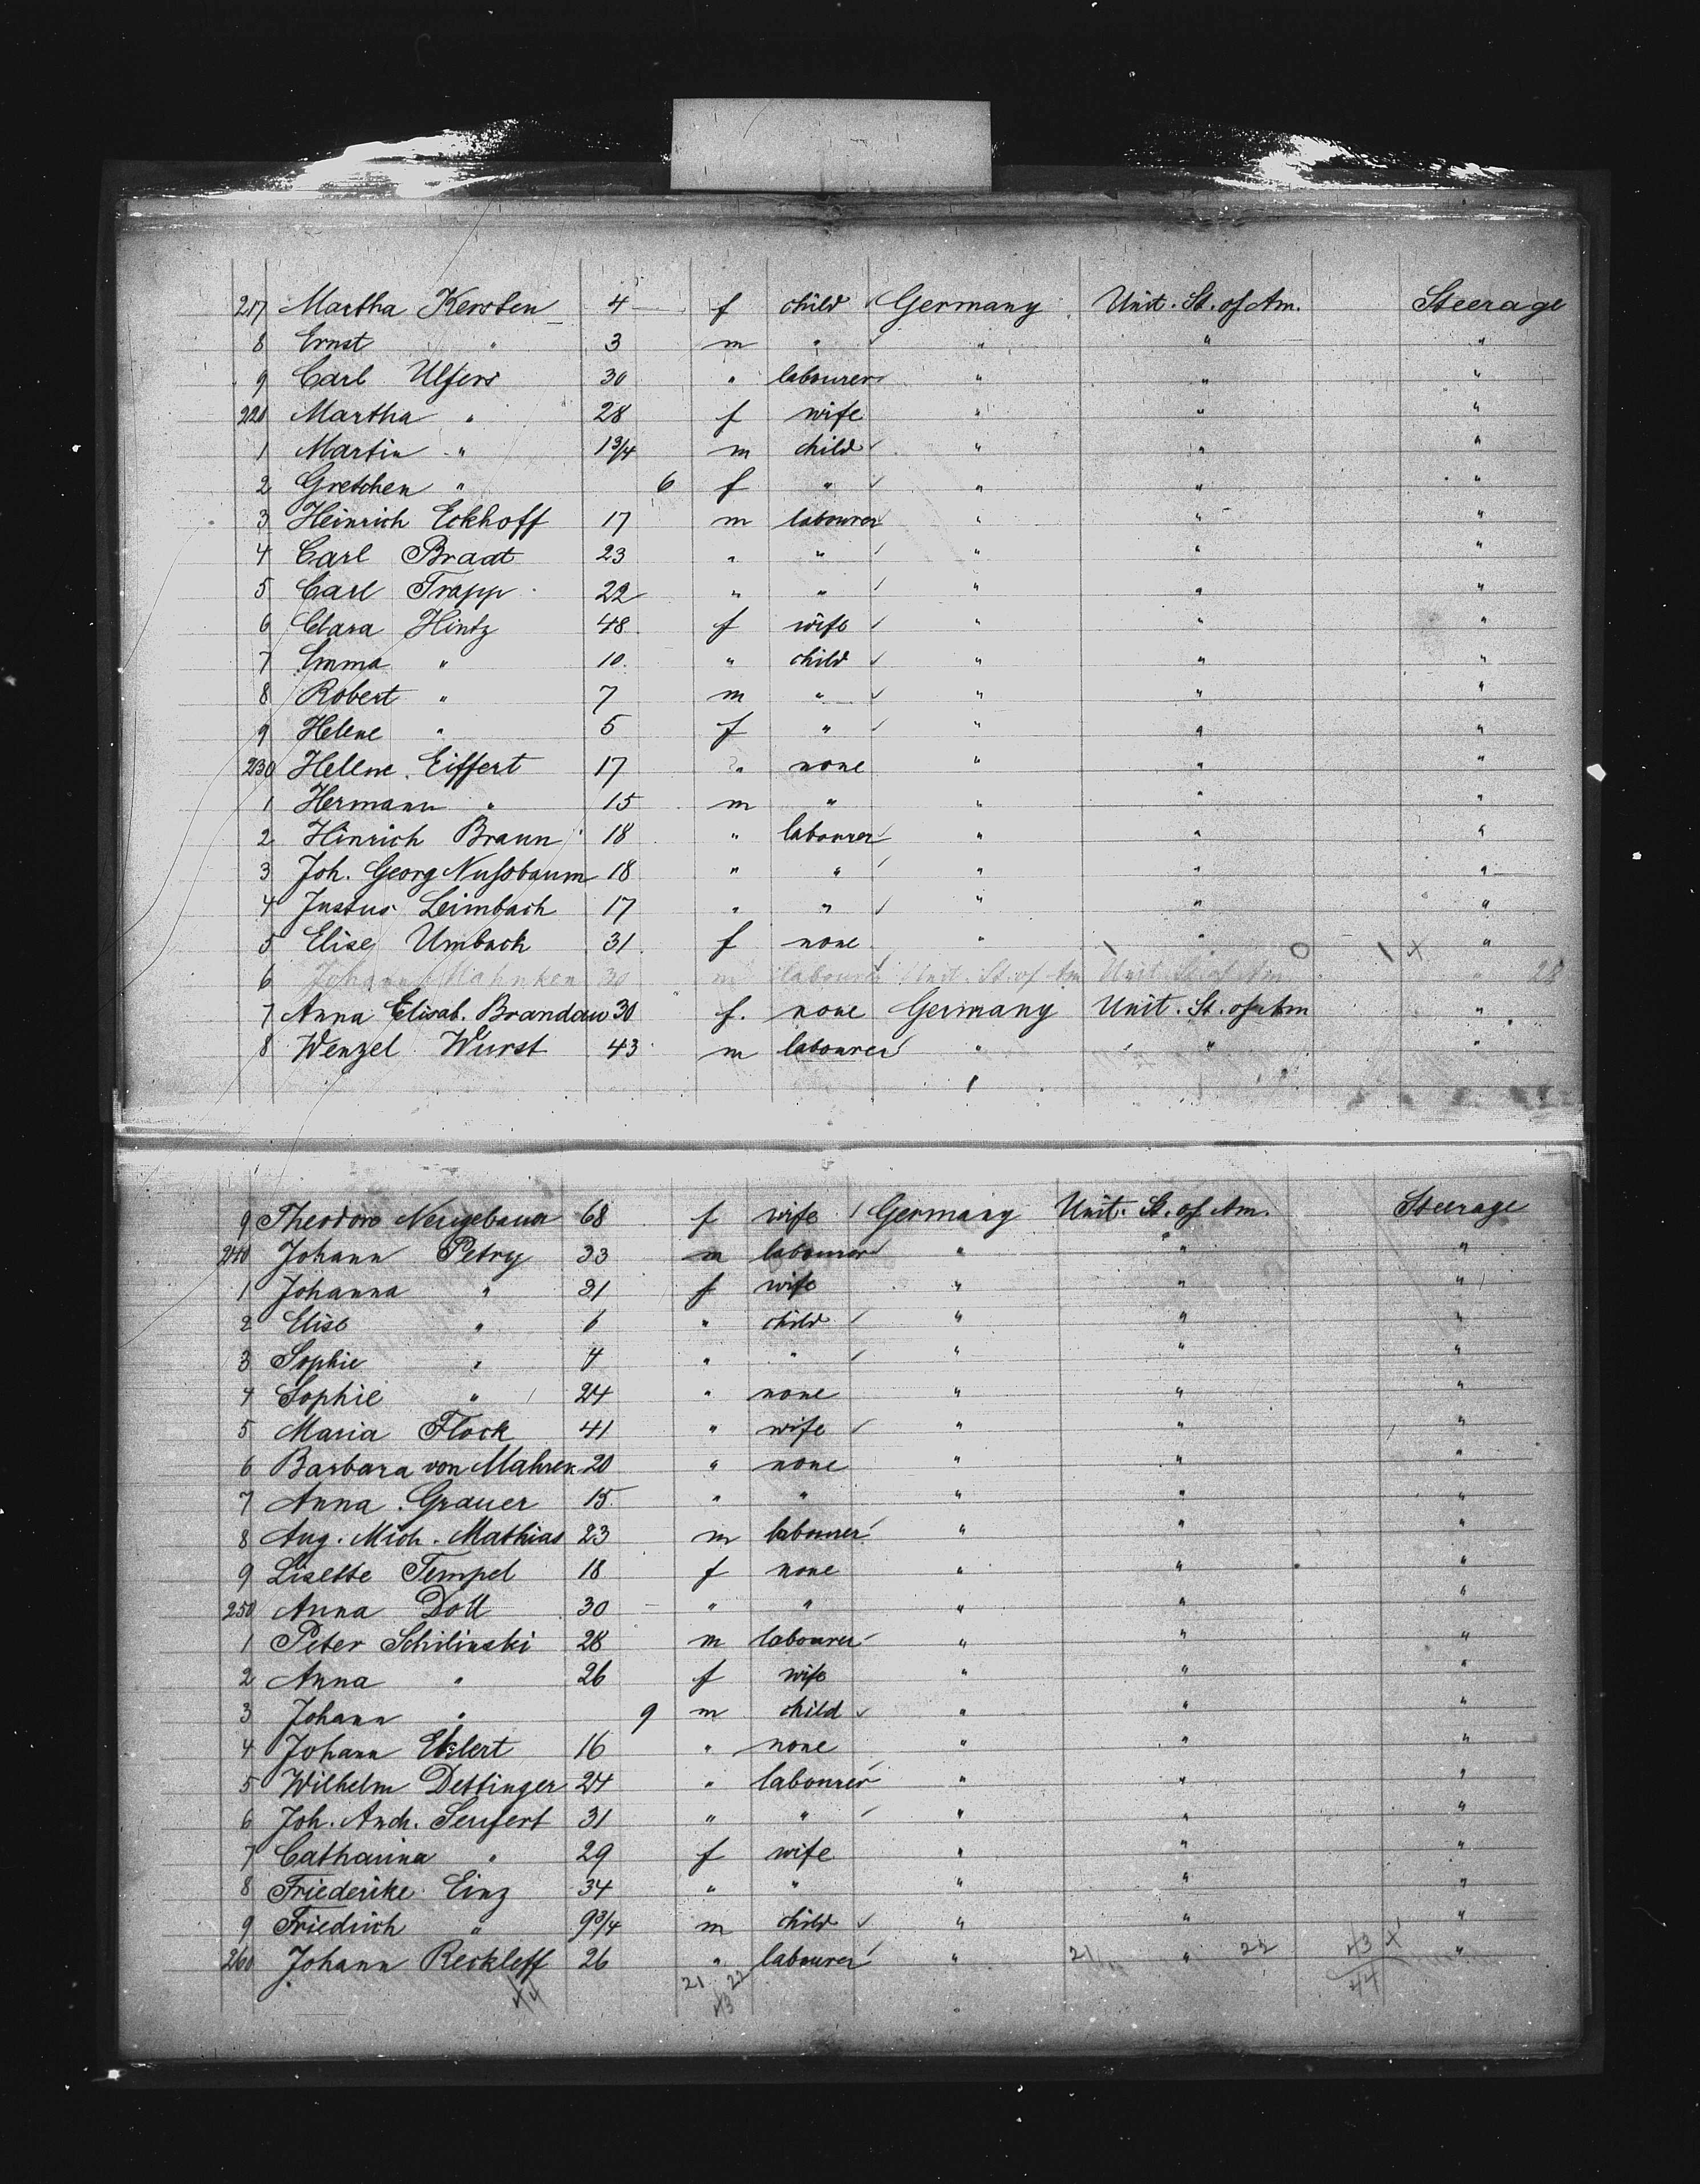 217 Martha Kersten 4 f child Germany Unit. St. of Am. Steerage
8 Ernst " 3 m " " " "
9 Carl Ulfers 30 " labourer " " "
220 Martha " 28 f wife " " "
1 Martin " 1 3/4 m child " " "
2 Gretchen " 6 f " " " "
3 Heinrich Eckhoff 17 m labourer " " "
4 Carl Bradt 23 " " " " "
5 Carl Trapp 22 " " " " "
6 Clara Hintz 48 f wife " " "
7 Emma " 10 " child " " "
8 Robert " 7 m " " " "
9 Helene " 5 f " " " "
230 Helene Eiffert 17 " none " " "
1 Hermann " 15 m " " " "
2 Hinrich Braun 18 " labourer " " "
3 Joh. Georg Nußbaum 18 " " " " "
4 Justus Leimbach 17 " " " " "
5 Elise Umbach 31 f none " " "
6 Johann Mahnken 30 m labourer Unit. St. of Am Unit. St. of Am. " 28
7 Anna Elisab. Brandau 30 f. none Germany Unit. St. of Am "
8 Wenzel Wurst 43 m labourer " " "
9 Theodore Neugebauer 68 f wife Germany Unit. St. of Am. Steerage
240 Johann Petry 33 m labourer " " "
1 Johanna " 21 f wife " " "
2 Elise " 6 " child " " "
3 Sophie " 4 " " " " "
4 Sophie " 24 " none " " "
5 Maria Flock 41 " wife " " "
6 Barbara von Mahren 20 " none " " "
7 Anna Grauer 15 " " " " "
8 Aug. Mich. Mathias 23 m labourer " " "
9 Lisette Tempel 18 f none " " "
250 Anna Doll 30 " " " " "
1 Peter Schilinski 28 m labourer " " "
2 Anna " 26 f wife " " "
3 Johann " 9 m child " " "
4 Johann Ehlert 16 " none " " "
5 Wilhelm Dettinger 24 " labourer " " "
6 Joh. Andr. Seufert 31 " " " " "
7 Catharina " 29 f wife " " "
8 Friederike Einz 34 " " " " "
9 Friedrich " 9 3/4 m child " " "
260 Johann Reckleff 26 " labourer " 21 " 22 43 "
44 21 22 44
43